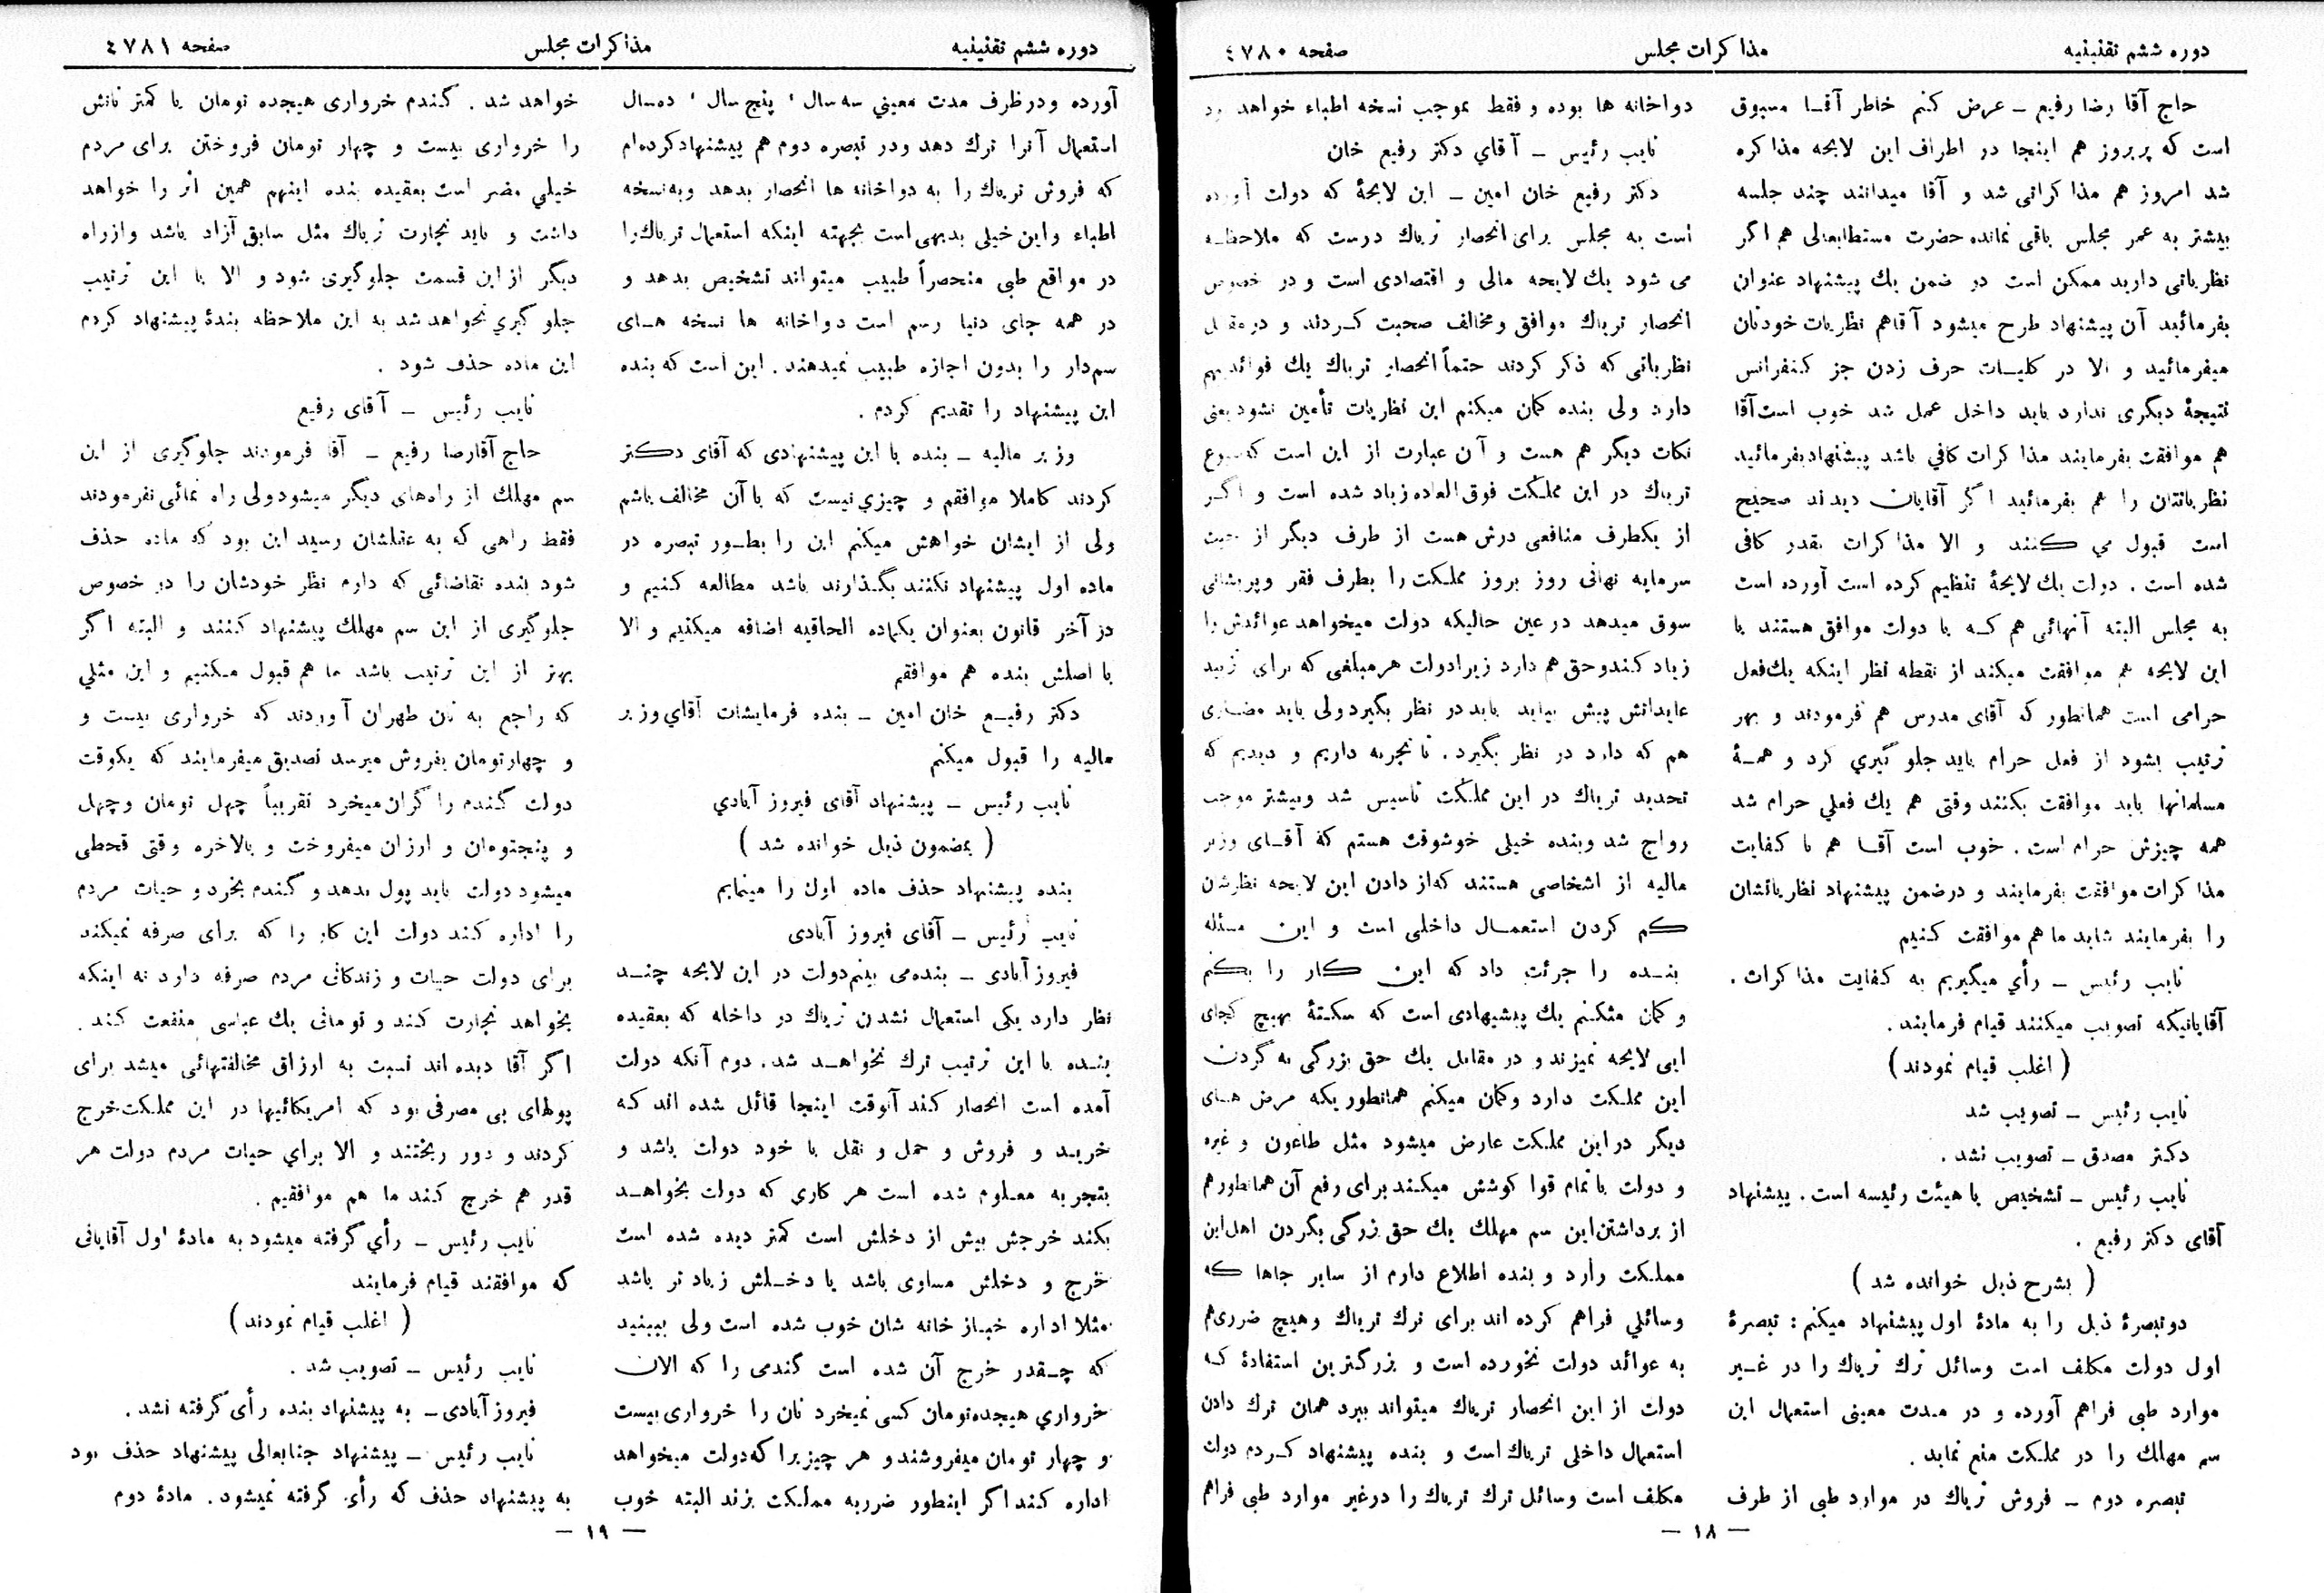 دوره ششم تقنینیه
مذاکرات مجلس
صفحه ٤٧٨٠
حاج آقا رضا رفیع ـ عرض کنم خاطر آقا مسبوق
است که پریروز هم اینجا در اطراف این لایحه مذاکره
شد امروز هم مذاکراتی شد و آقا میدانند چند جلسه
بیشتر به عمر مجلس باقی نمانده حضرت مستطابعالی هم اگر
نظریاتی دارید ممکن است در ضمن یك پیشنهاد عنوان
بفرمائید آن پیشنهاد طرح میشود آقاهم نظریات خودتان
میفرمائید و الا در کلیات حرف زدن جز کنفرانس
نتیجهٔ دیگری ندارد باید داخل عمل شد خوب است آقا
هم موافقت بفرمایند مذاکرات کافي باشد پیشنهاد بفرمائید
نظریاتتان را هم بفرمائید اگر آقایان دیدند صحیح
است قبول می کنند و الا مذاکرات بقدر کافی
شده است . دولت یك لایحهٔ تنظیم کرده است آورده است
به مجلس البته آنهائی هم که با دولت موافق هستند با
این لایحه هم موافقت میکند از نقطه نظر اینکه یك فعل
حرامی است همانطور که آقای مدرس هم فرمودند و بهر
ترتیب بشود از فعل حرام باید جلو گیري کرد و همهٔ
مسلمانها باید موافقت بکنند وقتی هم یك فعلي حرام شد
همه چیزش حرام است . خوب است آقا هم با کفایت
مذاکرات موافقت بفرمایند و درضمن پیشنهاد نظریاتشان
را بفرمایند شاید ما هم موافقت کنیم
نایب رئیس ـ رأي میگیریم به کفایت مذاکرات .
آقایانیکه تصویب میکنند قیام فرمایند .
( اغلب قیام نمودند )
نایب رئیس ـ تصویب شد
دکتر مصدق ـ تصویب نشد .
نایب رئیس ـ تشخیص با هیئت رئیسه است . پیشنهاد
آقای دکتر رفیع .
( بشرح ذیل خوانده شد )
دوتبصرهٔ ذیل را به مادهٔ اول پیشنهاد میکنم : تبصرهٔ
اول دولت مکلف است وسائل ترك تریاك را در غیر
موارد طبی فراهم آورده و در مدت معینی استعمال این
سم مهلك را در مملکت منع نماید .
تبصره دوم ـ فروش تریاك در موارد طبی از طرف
دواخانه ها بوده و فقط بموجب نسخه اطباء خواهد
نایب رئیس ـ آقاي دکتر رفیع خان
دکتر رفیع خان امین ـ این لایحهٔ که دولت آورده
است به مجلس برای انحصار تریاك درست که ملاحظه
می شود یك لایحه مالی و اقتصادی است و در خصوص
انحصار تریاك موافق ومخالف صحبت کردند و درمقابل
نظریاتی که ذکر کردند حتماً انحصار تریاك یك فوائد مهم
دارد ولی بنده گمان میکنم این نظریات تأمین نشود یعنی
نکات دیگر هم هست و آن عبارت از این است که شیوع
تریاك در این مملکت فوق العاده زیاد شده است و اگر
از یکطرف منافعی درش هست از طرف دیگر از حیث
سرمایه نهانی روز بروز مملکت را بطرف فقر وپریشانی
سوق میدهد در عین حالیکه دولت میخواهد عوائدش را
زیاد کند وحق هم دارد زیرا دولت هر مبلغی که برای تزیید
عایداتش پیش بیاید باید در نظر بگیرد ولی باید مضاری
هم که دارد در نظر بگیرد . تا تجربه داریم و دیدیم که
تحدید تریاك در این مملکت تأسیس شد وبیشتر موجب
رواج شد وبنده خیلی خوشوقت هستم که آقای وزیر
مالیه از اشخاصی هستند که از دادن این لایحه نظرشان
کم کردن استعمال داخلی است و این مسئله
بنده را جرئت داد که این کار را بکنم
و گمان میکنم یك پیشنهادی است که سکتهٔ بهیچ کجای
این لایحه نمیزند و در مقابل یك حق بزرگی به گردن
این مملکت دارد وگمان میکنم همانطوریکه مرض های
دیگر در این مملکت عارض میشود مثل طاعون و غیره
و دولت با تمام قوا کوشش میکند برای رفع آن همانطور هم
از برداشتن این سم مهلك یك حق بزرگی بگردن اهل این
مملکت دارد و بنده اطلاع دارم از سایر جاها که
وسائلی فراهم کرده اند برای ترك تریاك وهیچ ضرری هم
به عوائد دولت نخورده است و بزرگترین استفادهٔ که
دولت از این انحصار تریاك میتواند ببرد همان ترك دادن
استعمال داخلی تریاك است و بنده پیشنهاد کردم دولت
مکلف است وسائل ترك تریاك را درغیر موارد طبی فراهم
ـ ١٨ ـ
دوره ششم تقنینیه
مذاکرات مجلس
صفحه ٤٧٨١
آورده ودرظرف مدت معیني سه سال ، پنج سال ، ده سال
استعمال آنرا ترك دهد ودر تبصره دوم هم پیشنهاد کرده ام
که فروش تریاك را به دواخانه ها انحصار بدهد وبه نسخه
اطباء واین خیلی بدیهی است بجهته اینکه استعمال تریاك را
در مواقع طبی منحصراً طبیب میتواند تشخیص بدهد و
در همه جای دنیا رسم است دواخانه ها نسخه های
سم‌دار را بدون اجازه طبیب نمیدهند . این است که بنده
این پیشنهاد را تقدیم کردم .
وزیر مالیه ـ بنده با این پیشنهادی که آقای دکتر
کردند کاملا موافقم و چیزي نیست که با آن مخالف باشم
ولی از ایشان خواهش میکنم این را بطور تبصره در
ماده اول پیشنهاد نکنند بگذارند باشد مطالعه کنیم و
در آخر قانون بعنوان یکماده الحاقیه اضافه میکنیم و الا
با اصلش بنده هم موافقم
دکتر رفیع خان امین ـ بنده فرمایشات آقاي وزیر
مالیه را قبول میکنم
نایب رئیس ـ پیشنهاد آقای فیروز آبادي
( بمضمون ذیل خوانده شد )
بنده پیشنهاد حذف ماده اول را مینمایم
نایب رئیس ـ آقای فیروز آبادی
فیروز آبادی ـ بنده می بینم دولت در این لایحه چند
نظر دارد یکی استعمال نشدن تریاك در داخله که بعقیده
بنده با این ترتیب ترك نخواهد شد . دوم آنکه دولت
آمده است انحصار کند آنوقت اینجا قائل شده اند که
خرید و فروش و حمل و نقل با خود دولت باشد و
بتجربه معلوم شده است هر کاري که دولت بخواهد
بکند خرجش بیش از دخلش است کمتر دیده شده است
خرج و دخلش مساوی باشد یا دخلش زیاد تر باشد
مثلا اداره خبازخانه شان خوب شده است ولی ببینید
که چقدر خرج آن شده است گندمی را که الان
خرواري هیجده تومان کسی نمیخرد نان را خرواری بیست
و چهار تومان میفروشند و هر چیزیرا که دولت میخواهد
اداره کند اگر اینطور ضرربه مملکت بزند البته خوب
خواهد شد . گندم خرواری هیجده تومان یا کمتر نانش
را خرواری بیست و چهار تومان فروختن برای مردم
خیلي مضر است بعقیده بنده اینهم همین اثر را خواهد
داشت و باید تجارت تریاك مثل سابق آزاد باشد وازراه
دیگر از این قسمت جلوگیری شود و الا با این ترتیب
جلوگیري نخواهد شد به این ملاحظه بندهٔ پیشنهاد کردم
این ماده حذف شود .
نایب رئیس ـ آقای رفیع
حاج آقارضا رفیع ـ آقا فرمودند جلوگیری از این
سم مهلك از راه‌های دیگر میشود ولی راه نمائی نفرمودند
فقط راهی که به عقلشان رسید این بود که ماده حذف
شود بنده تقاضائی که دارم نظر خودشان را در خصوص
جلوگیری از این سم مهلك پیشنهاد کنند و البته اگر
بهتر از این ترتیب باشد ما هم قبول میکنیم و این مثلي
که راجع به نان طهران آوردند که خرواری بیست و
و چهار تومان بفروش میرسد تصدیق میفرمایند که یکوقت
دولت گندم را گران میخرد تقریباً چهل تومان وچهل
و پنجتومان و ارزان میفروخت و بالاخره وقتی قحطی
میشود دولت باید پول بدهد و گندم بخرد و حیات مردم
را اداره کند دولت این کار را که برای صرفه نمیکند
برای دولت حیات و زندگانی مردم صرفه دارد نه اینکه
بخواهد تجارت کند و تومانی یك عباسی منفعت کند .
اگر آقا دیده اند نسبت به ارزاق مخالفتهائی میشد برای
پولهای بی مصرفی بود که امریکائیها در این مملکت خرج
کردند و دور ریختند و الا براي حیات مردم دولت هر
قدر هم خرج کند ما هم موافقیم .
نایب رئیس ـ رأي گرفته میشود به مادهٔ اول آقایانی
که موافقند قیام فرمایند
( اغلب قیام نمودند )
نایب رئیس ـ تصویب شد .
فیروز آبادی ـ به پیشنهاد بنده رأی گرفته نشد .
نایب رئیس ـ پیشنهاد جنابعالی پیشنهاد حذف بود
به پیشنهاد حذف که رأی گرفته نمیشود . مادهٔ دوم
ـ ١٩ ـ